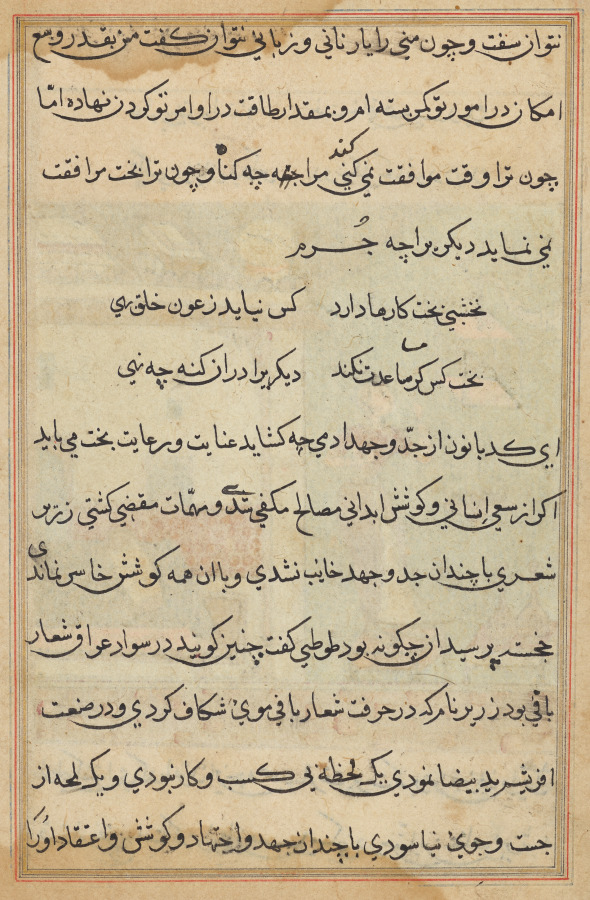 نتوان سفت و چون مني را يارناني و زباني نتوان كفت من بقدر وسع
امكان در امور تو كمر بسته ام و بمقدار طاقت در اوامر تو كردن نهاده امّا
چون ترا وقت موافقت نمي كني مرا چه كناه و چون ترا بخت مرافقت
كند
نمي نمايد ديكريرا چه جُرم
نخشبي بخت كارها دارد كس نيايد ز عون خلق بهي
بخت كس كر مساعدت نكند ديكريرا دران كنه چه نهي
اي كدبانو از جدّ و جهد ادمي چه كشايد عنايت و رعايت بخت مي بايد
اكر از سعي انساني و كوشش ابداني مصالح مكفي شدي و مهمّات مقضي كشتي زرير
شعري با چندان جد و جهد خايب نشدي و با ان همه كوشش خاسر نماندي
خجسته پرسيد ان چكونه بود طوطي كفت چنين كويند در سواد عراق شعار
بافي بود زرير نام كه در حرفت شعار بافي موي شكاف كردي و در صنعت
يد بيضا نمودي يك لحظه بي كسب و كار نبودي و يك لمحه از
جست و جوي نياسودي با چندان جهد و اجتهاد و كوشش و اعتقاد او را